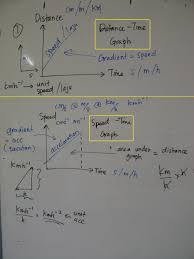 Distance cm/m/km
①
speed/laju
Distance - Time
Graph
Gradient = speed
Time s/m/h
kmh⁻¹ → unit speed/laju
cm/s @ m/s @ km/h kmh⁻¹
Speed cms⁻¹ ms⁻¹
Speed - Time
Graph
gradient
= acc
acceleration
area under graph = distance
Time s/m/h
kmh⁻¹
h
km/h × h
kmh⁻¹/h = kmh⁻² → unit acc